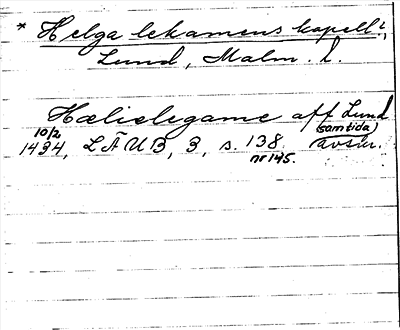 * Helga lekamens kapell?,
Lund, Malm. l.
Helielegame aff Lund
10/2 (samtida)
1434, LÄUB, 3, s. 138. avskr.
nr 145.